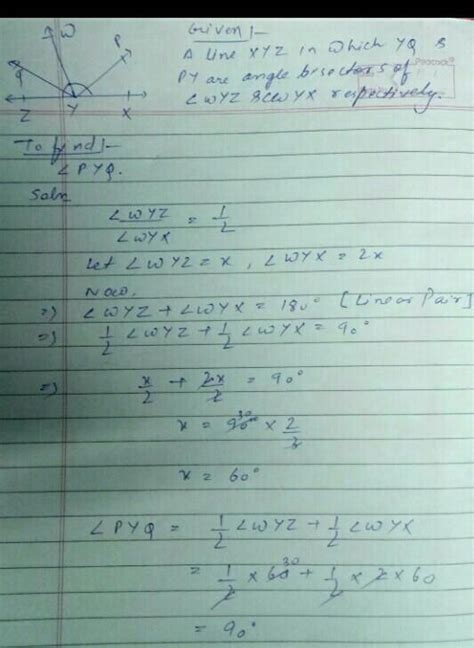 W
P
Q
Z Y X
Given :-
A line XYZ in which YQ &
PY are angle bisectors of
∠WYZ & ∠WYX respectively.
To find :-
∠PYQ.
Soln
∠WYZ / ∠WYX = 1/2
Let ∠WYZ = x , ∠WYX = 2x
Now,
=) ∠WYZ + ∠WYX = 180° [Linear Pair]
=) 1/2 ∠WYZ + 1/2 ∠WYX = 90°
=) x/2 + 2x/2 = 90°
x = 90° 30 × 2/3
x = 60°
∠PYQ = 1/2 ∠WYZ + 1/2 ∠WYX
= 1/2 × 60 30 + 1/2 × 2 × 60
= 90°